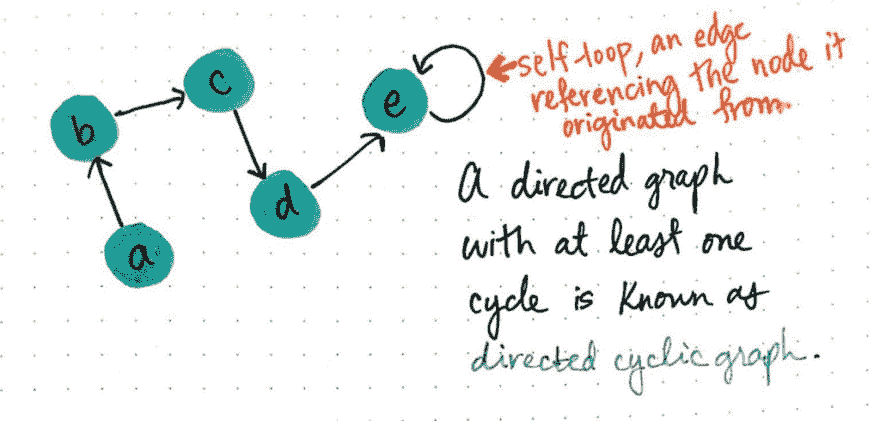 a
b
c
d
e
self-loop, an edge
referencing the node it
originated from.
A directed graph
with at least one
cycle is known as
directed cyclic graph.